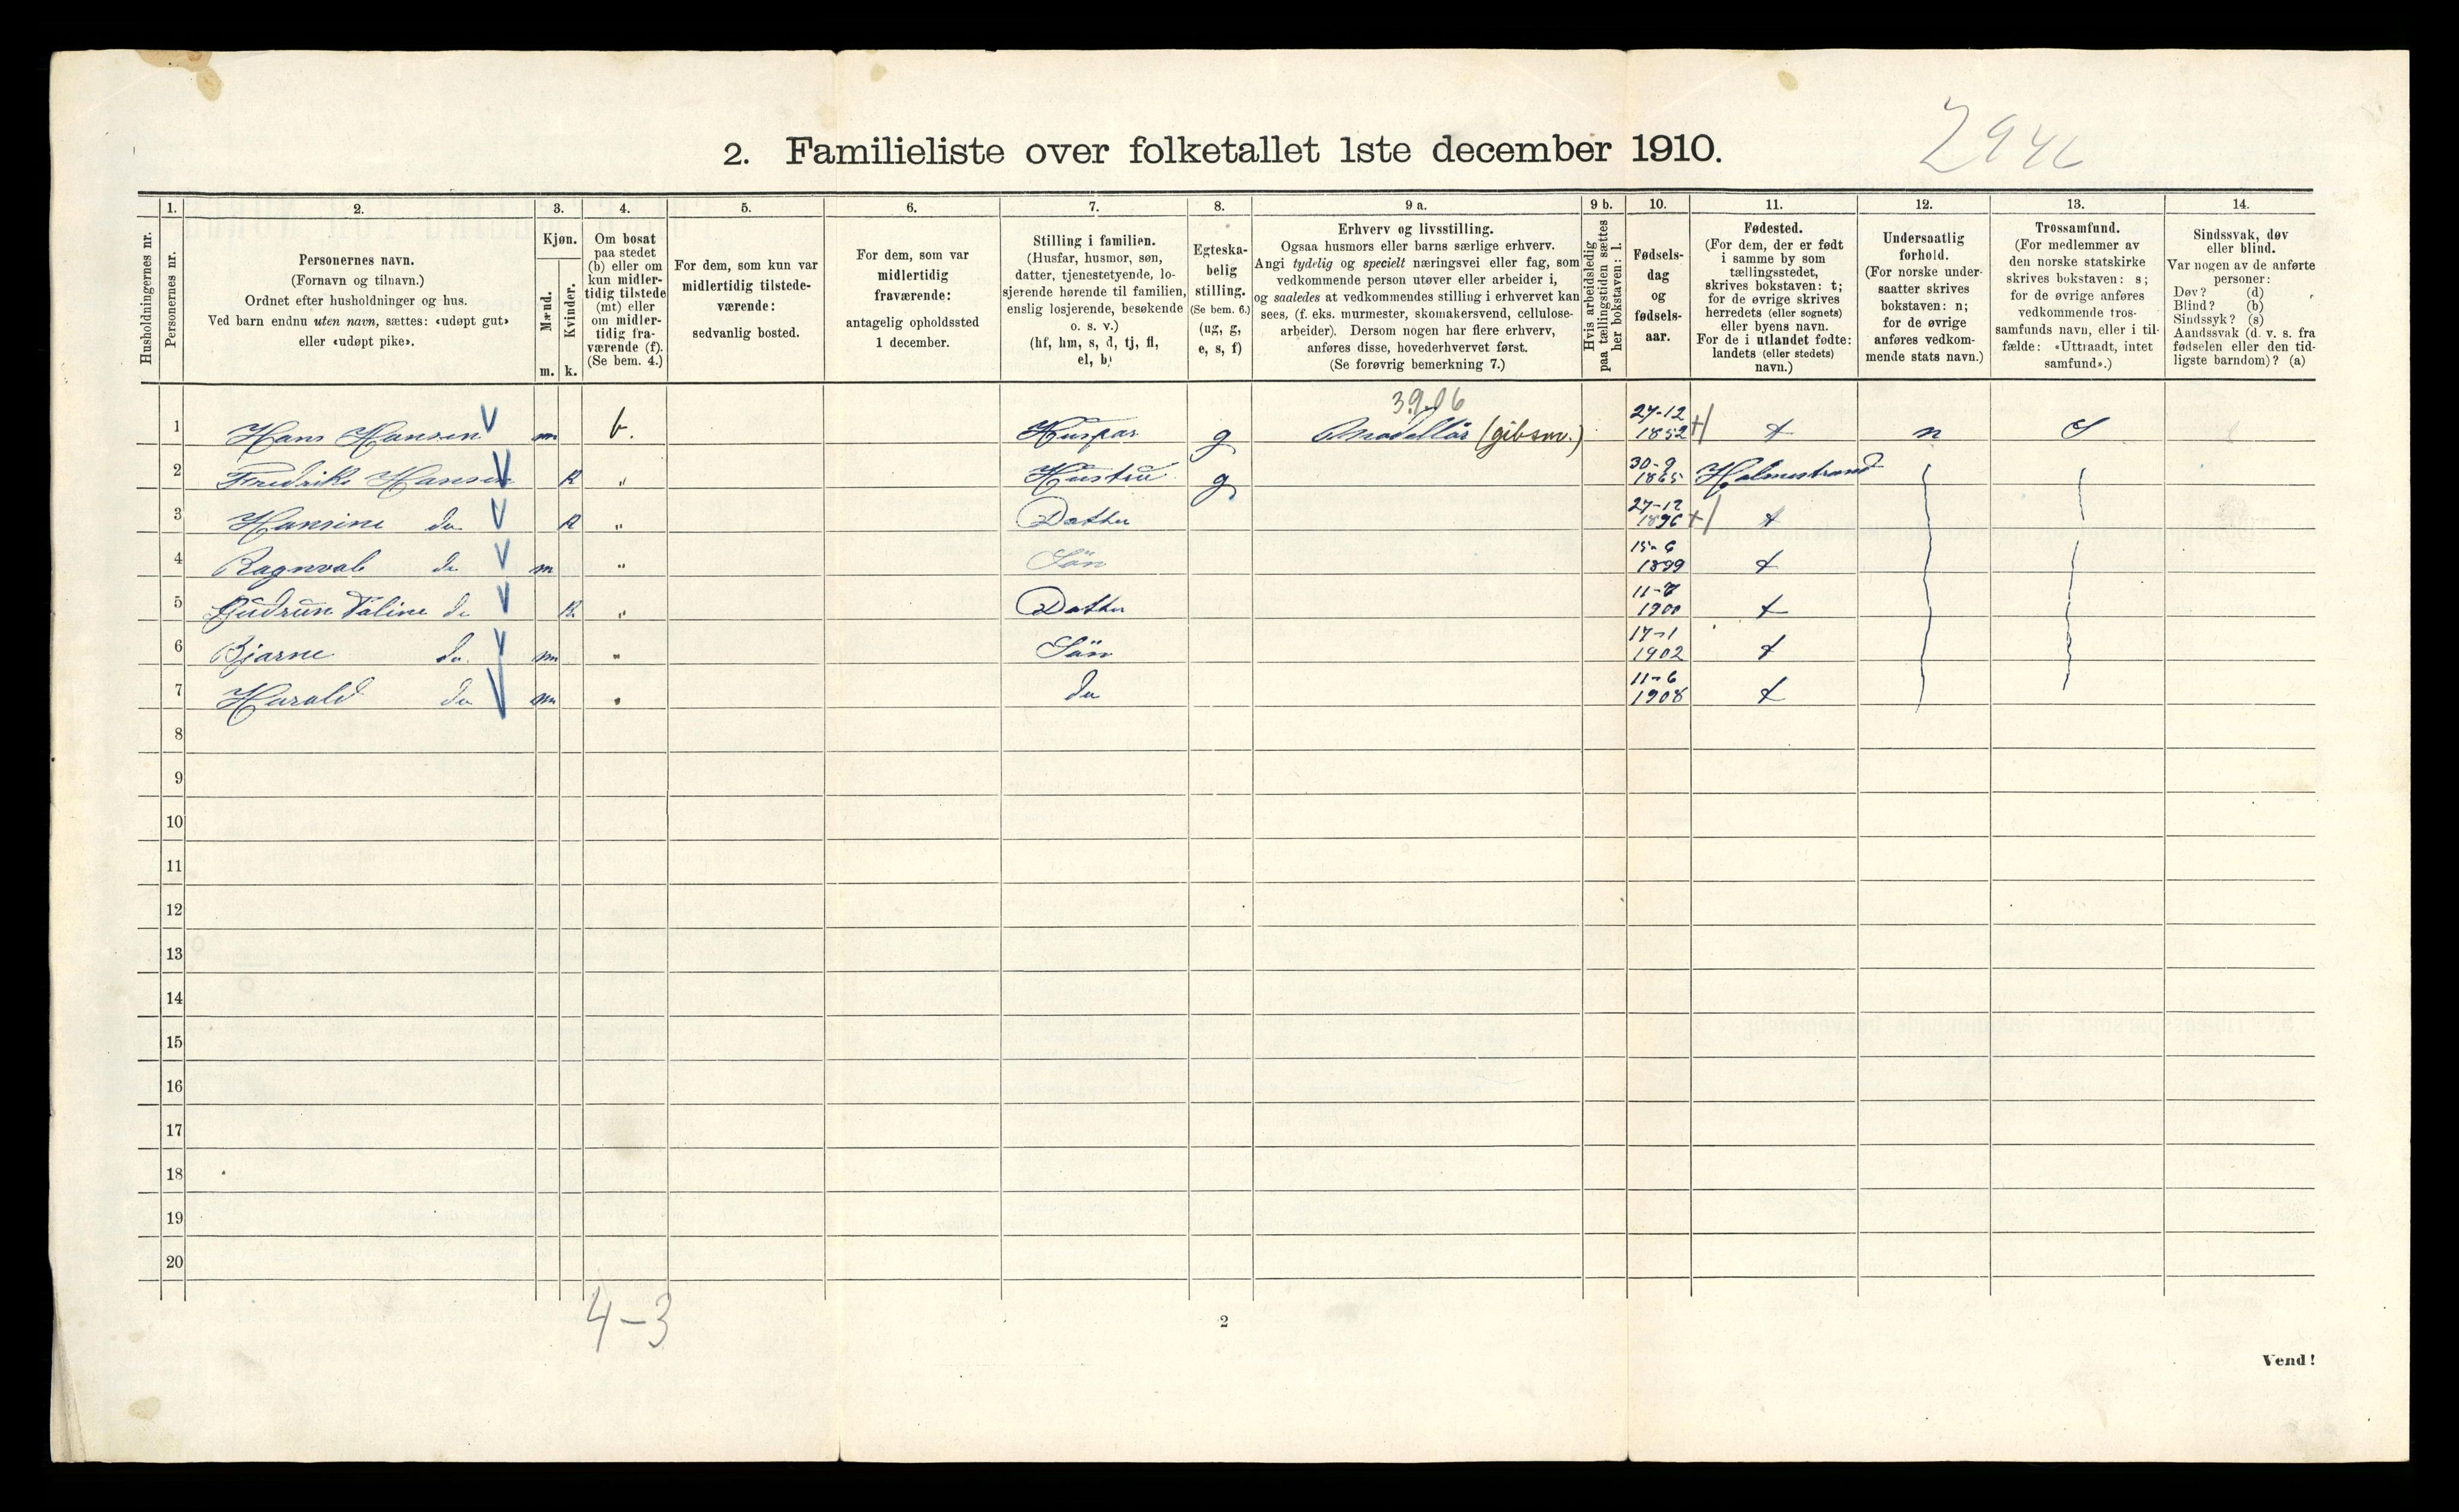 2946
2. Familieliste over folketallet 1ste december 1910.
1. 2. 3. 4. 5. 6. 7. 8. 9 a. 9 b. 10. 11. 12. 13. 14.
Husholdningernes nr.
Personernes nr.
Personernes navn.
(Fornavn og tilnavn.)
Ordnet efter husholdninger og hus.
Ved barn endnu uten navn, sættes: «udøpt gut»
eller «udøpt pike».
Kjøn.
Mænd.
Kvinder.
m. k.
Om bosat
paa stedet
(b) eller om
kun midler-
tidig tilstede
(mt) eller
om midler-
tidig fra-
værende (f).
(Se bem. 4.)
For dem, som kun var
midlertidig tilstede-
værende:
sedvanlig bosted.
For dem, som var
midlertidig
fraværende:
antagelig opholdssted
1 december.
Stilling i familien.
(Husfar, husmor, søn,
datter, tjenestetyende, lo-
sjerende hørende til familien,
enslig losjerende, besøkende
o. s. v.)
(hf, hm, s, d, tj, fl,
el, b)
Egteska-
belig
stilling.
(Se bem. 6.)
(ug, g,
e, s, f)
Erhverv og livsstilling.
Ogsaa husmors eller barns særlige erhverv.
Angi tydelig og specielt næringsvei eller fag, som
vedkommende person utøver eller arbeider i,
og saaledes at vedkommendes stilling i erhvervet kan
sees, (f. eks. murmester, skomakersvend, cellulose-
arbeider). Dersom nogen har flere erhverv,
anføres disse, hovederhvervet først.
(Se forøvrig bemerkning 7.)
Hvis arbeidsledig
paa tællingstiden sættes
her bokstaven: l.
Fødsels-
dag
og
fødsels-
aar.
Fødested.
(For dem, der er født
i samme by som
tællingsstedet,
skrives bokstaven: t;
for de øvrige skrives
herredets (eller sognets)
eller byens navn.
For de i utlandet fødte:
landets (eller stedets)
navn.)
Undersaatlig
forhold.
(For norske under-
saatter skrives
bokstaven: n;
for de øvrige
anføres vedkom-
mende stats navn.)
Trossamfund.
(For medlemmer av
den norske statskirke
skrives bokstaven: s;
for de øvrige anføres
vedkommende tros-
samfunds navn, eller i til-
fælde: «Uttraadt, intet
samfund».)
Sindssvak, døv
eller blind.
Var nogen av de anførte
personer:
Døv? (d)
Blind? (b)
Sindssyk? (s)
Aandssvak (d. v. s. fra
fødselen eller den tid-
ligste barndom)? (a)
3906
1 Hans Hansen m b. Husfar g Modellör (gibsm.) 27-12 1852 t n S
2 Fredrikke Hansen k " Hustru g 30-9 1865 Holmestrand
3 Hansine do k " Datter 27-12 1896 t
4 Ragnvald do m " Sön 15-6 1899 t
5 Gudrun Valine do k " Datter 11-7 1900 t
6 Bjarne do m " Sön 17-1 1902 t
7 Harald do m " do 11-6 1908 t
8
9
10
11
12
13
14
15
16
17
18
19
20
4-3
2
Vend!